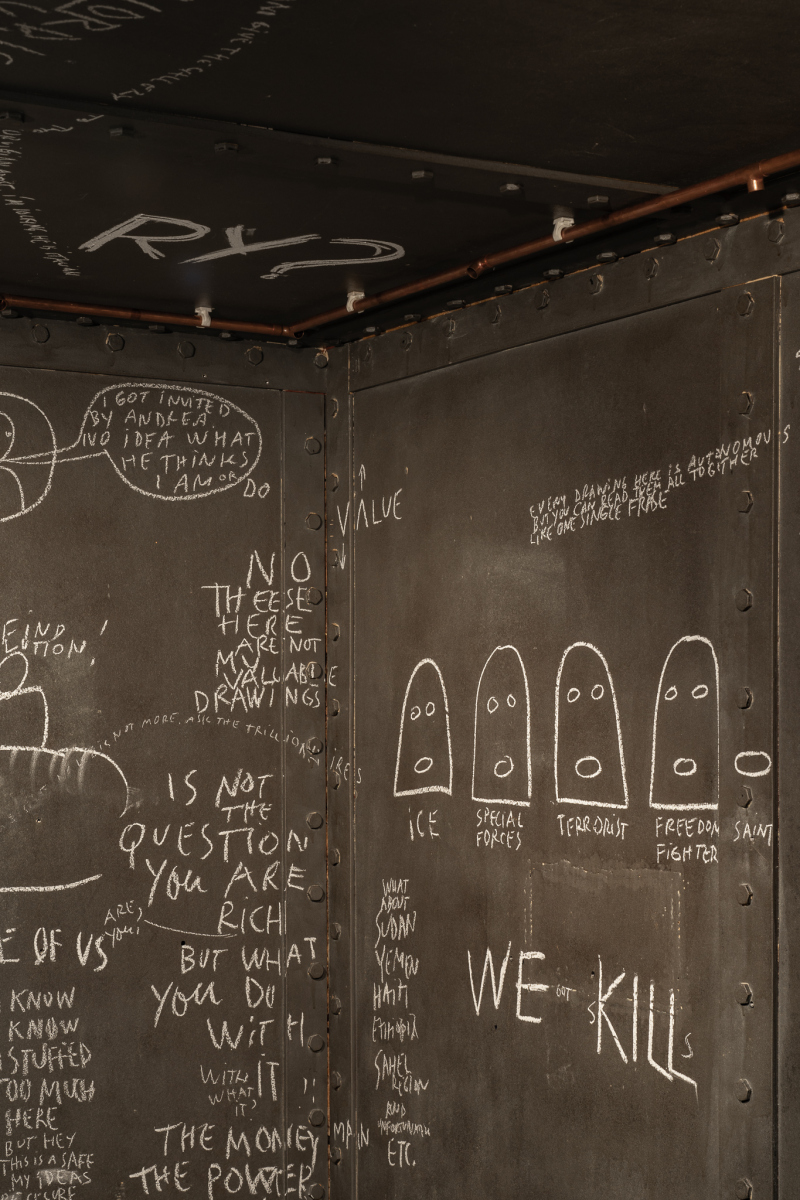 IM GIVE THE
RY?
I GOT INVITED
BY ANDREA.
NO IDEA WHAT
HE THINKS
I AM OR
DO
VALUE
EVERY DRAWING HERE IS AUTONOMOUS
BUT YOU CAN READ THEM ALL TOGITHER
LIKE ONE SINGLE FRASE
NO
THEESE
HERE
ARE NOT
MY
VALUABLE
DRAWINGS
IS NOT MORE. ASK THE TRILLIONAIRES
IS NOT
THE
QUESTION
YOU ARE
RICH
BUT WHAT
YOU DO
WITH
IT !!
WITH
WHAT
IT?
THE MONEY
THE POWER
ARE
YOU?
E OF US
KNOW
KNOW
STUFFED
TOO MUCH
HERE
BUT HEY
THIS IS A SAFE
MY IDEAS
ICE
SPECIAL
FORCES
TERRORIST
FREEDOM
FIGHTER
SAINT
WHAT
ABOUT
SUDAN
YEMEN
HAITI
ETHIOPIA
SAHEL
REGION
AND
UNFORTUNATELY
ETC.
WE GOT SKILLS